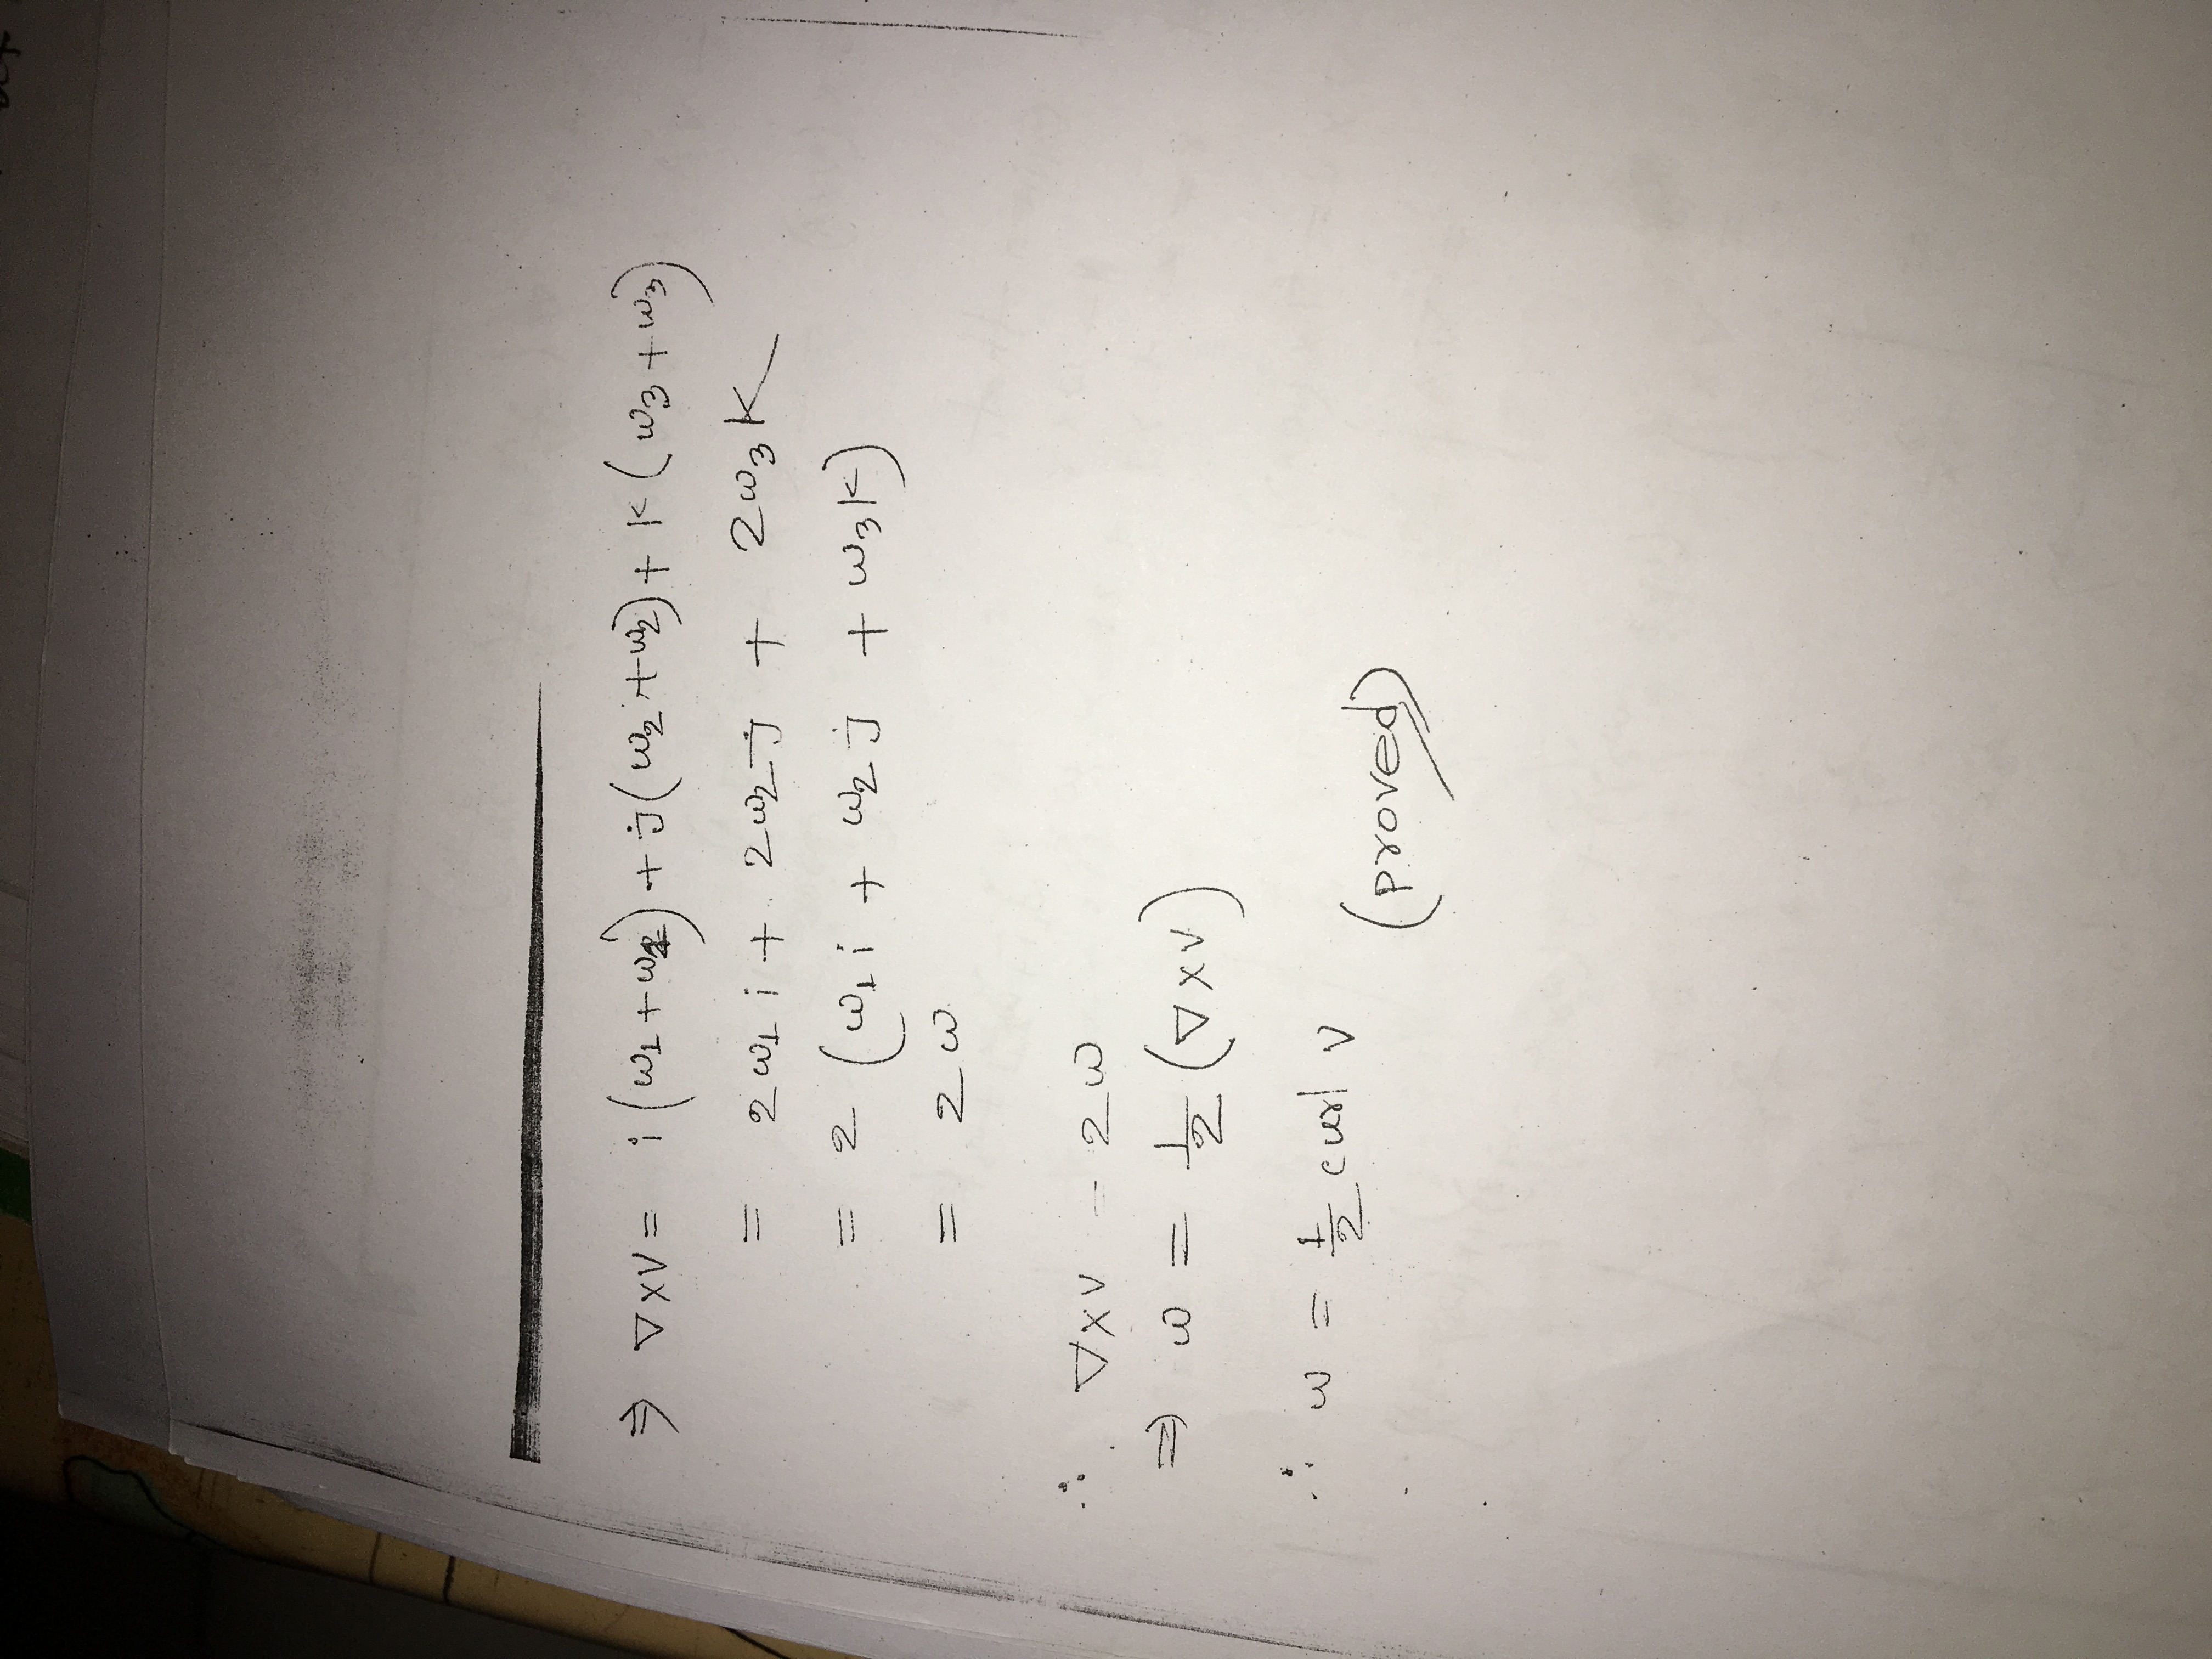 ⇒ ∇×V = i(ω₁+ω₁)+j(ω₂+ω₂)+k(ω₃+ω₃)
= 2ω₁i + 2ω₂j + 2ω₃k
= 2(ω₁i + ω₂j + ω₃k)
= 2ω
∴ ∇×V = 2ω
⇒ ω = 1/2 (∇×V)
∴ ω = 1/2 curl V
(proved)